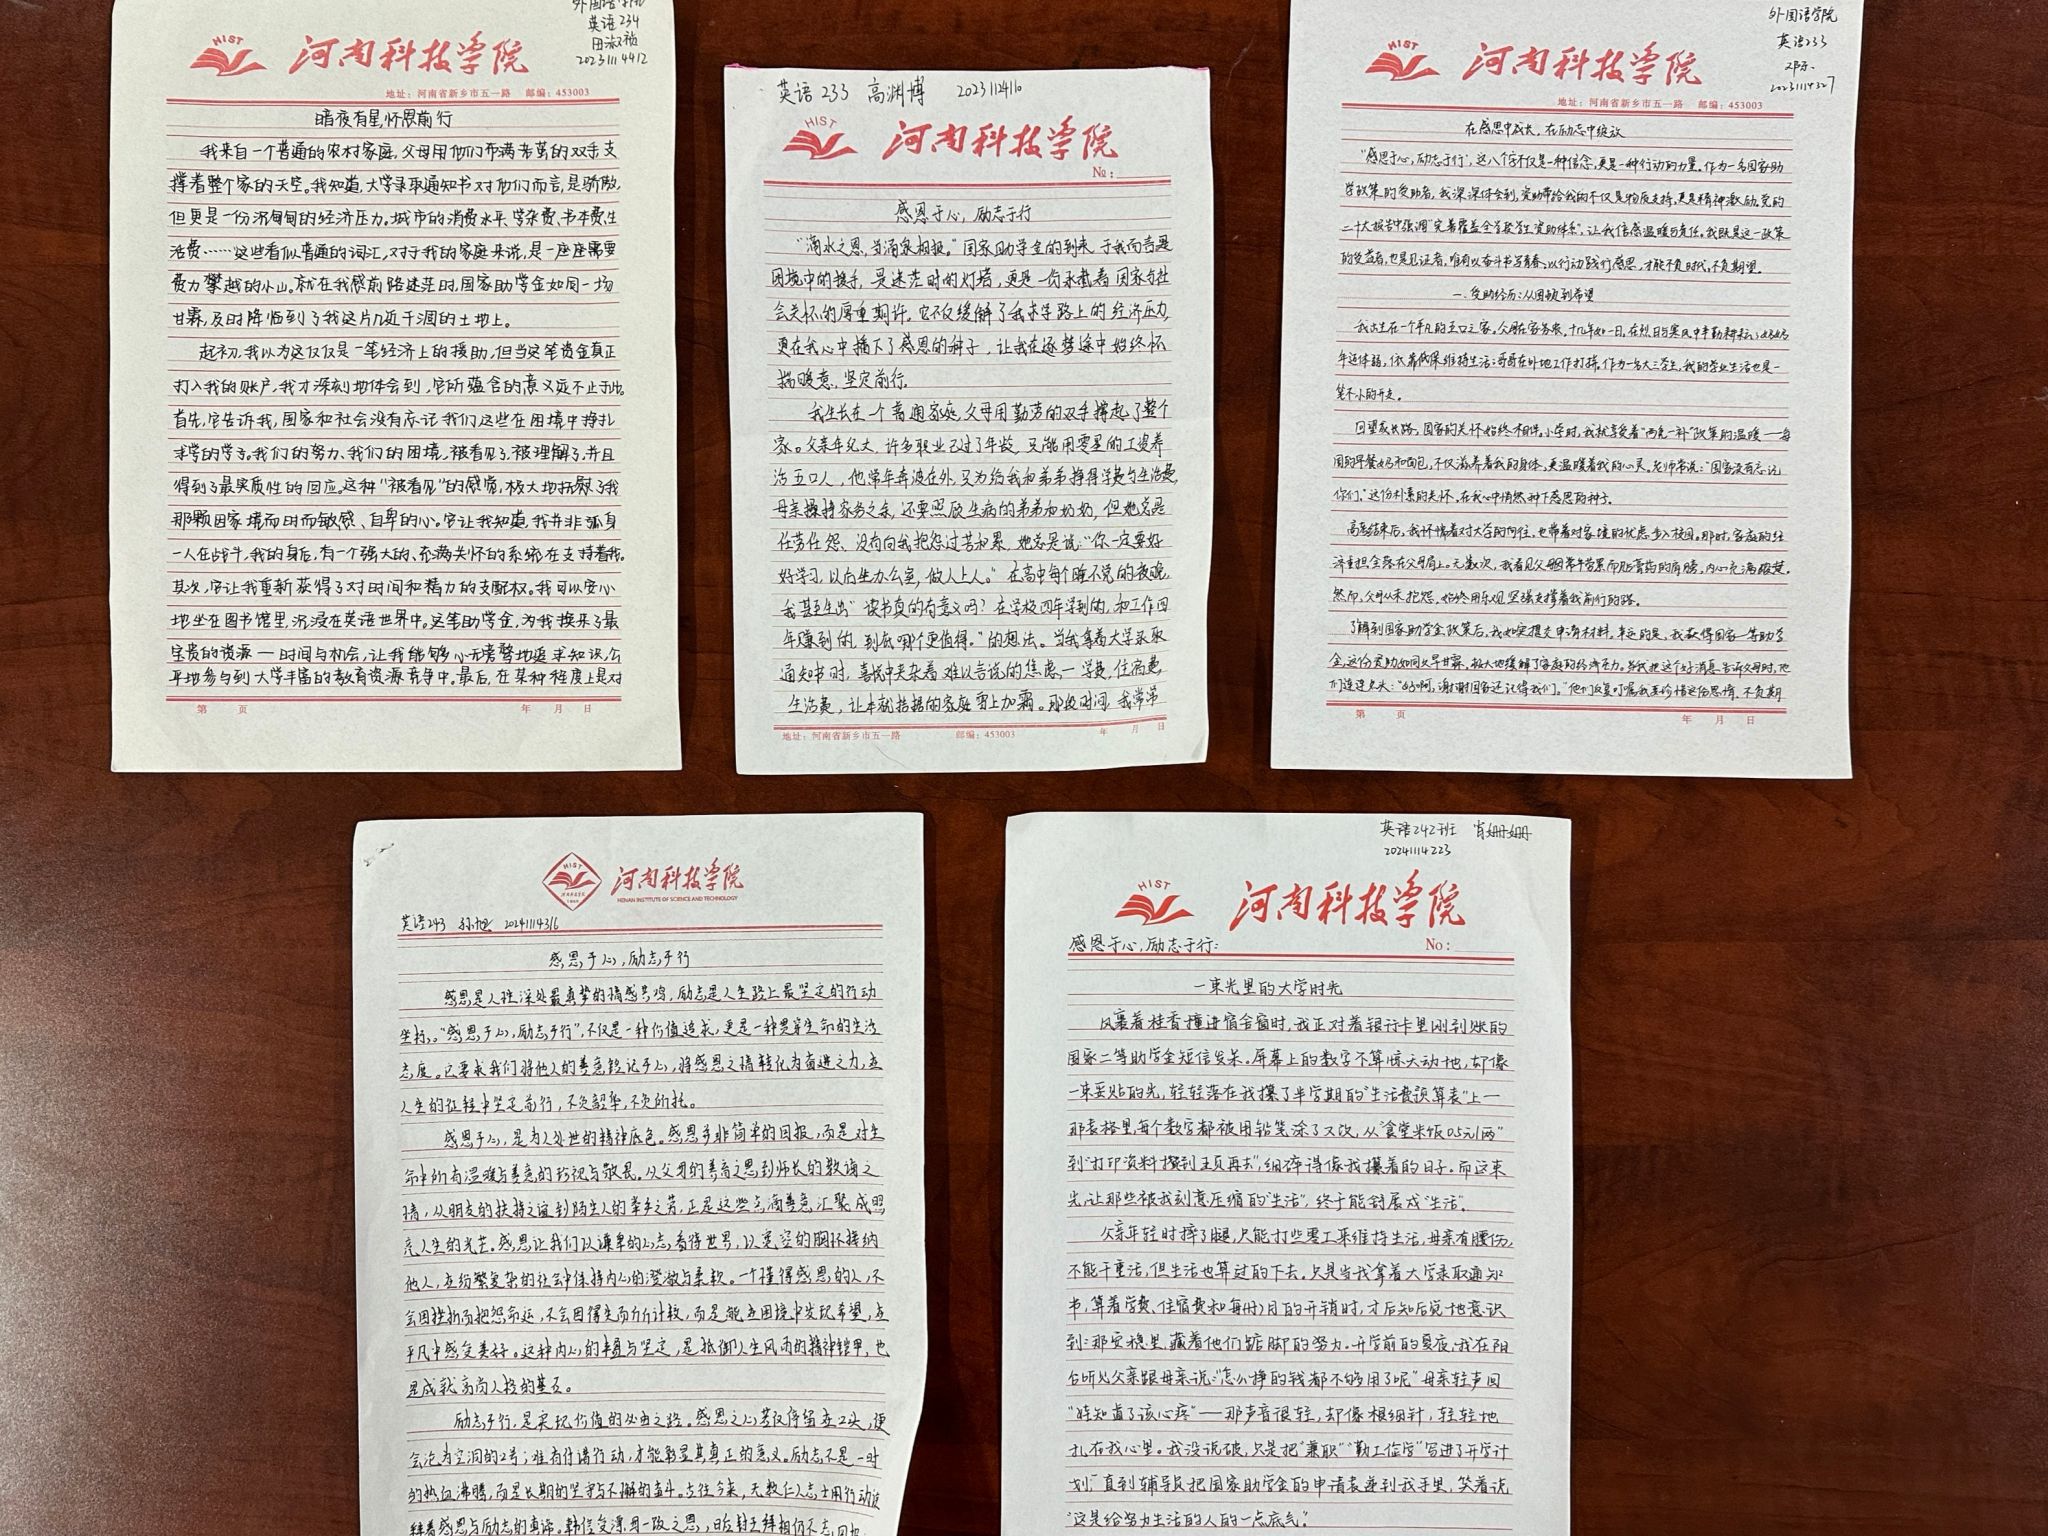 外国语学院
英语234
田淑祯
20231114412
HIST
河南科技学院
地址：河南省新乡市五一路 邮编：453003
暗夜有星，怀恩前行
我来自一个普通的农村家庭，父母用他们布满老茧的双手支
撑着整个家的天空。我知道，大学录取通知书对他们而言，是骄傲，
但更是一份沉甸甸的经济压力。城市的消费水平、学杂费、书本费、生
活费……这些看似普通的词汇，对于我的家庭来说，是一座座需要
费力攀越的小山。就在我感前路迷茫时，国家助学金如同一场
甘霖，及时降临到了我这片几近干涸的土地上。
起初，我以为这仅仅是一笔经济上的援助，但当这笔资金真正
打入我的账户，我才深刻地体会到，它所蕴含的意义远不止于此。
首先，它告诉我，国家和社会没有忘记我们这些在困境中挣扎
求学的学子。我们的努力、我们的困境，被看见了，被理解了，并且
得到了最实质性的回应。这种“被看见”的感觉，极大地抚慰了我
那颗因家境而时而敏感、自卑的心。它让我知道，我并非孤身
一人在战斗，我的身后，有一个强大的、充满关怀的系统在支持着我。
其次，它让我重新获得了对时间和精力的支配权。我可以安心
地坐在图书馆里，沉浸在英语世界中。这笔助学金，为我换来了最
宝贵的资源—时间与机会，让我能够心无旁骛地追求知识，公
平地参与到大学丰富的教育资源竞争中。最后，在某种程度上是对
第 页 年 月 日
英语233 高渊博 20231124110
HIST
河南科技学院
№：
感恩于心，励志于行
“滴水之恩，当涌泉相报。”国家助学金的到来，于我而言是
困境中的援手，是迷茫时的灯塔，更是一份承载着国家与社
会关怀的厚重期许。它不仅缓解了我求学路上的经济压力，
更在我心中播下了感恩的种子，让我在逐梦途中始终怀
揣暖意，坚定前行。
我生长在一个普通家庭，父母用勤劳的双手撑起了整个
家。父亲年纪大，许多职业已过了年龄，只能用零星的工资养
活五口人，他常年奔波在外，只为给我和弟弟挣得学费与生活费，
母亲操持家务之余，还要照顾生病的弟弟和奶奶，但她总是
任劳任怨、没有向我抱怨过苦和累，她总是说：“你一定要好
好学习，以后坐办公室，做人上人。”在高中每个晦不觉的夜晚，
我甚至生出“读书真的有意义吗？在学校四年学到的，和工作四
年赚到的，到底哪个更值得。”的想法。当我拿着大学录取
通知书时，喜悦中夹杂着难以言说的焦虑—学费，住宿费，
生活费，让本就拮据的家庭雪上加霜。那段时间，我常常
地址：河南省新乡市五一路 邮编：453003 年 月 日
外国语学院
英语233
20231114327
HIST
河南科技学院
地址：河南省新乡市五一路 邮编：453003
在感恩中成长，在励志中绽放
“感恩于心，励志于行”，这八个字不仅是一种信念，更是一种行动的力量。作为一名国家助
学政策的受助者，我深深体会到，资助带给我的不仅是物质支持，更是精神激励。党的
二十大报告中强调“完善覆盖全学段学生资助体系”，让我倍感温暖与责任。我既是这一政策
的受益者，也是见证者，唯有以奋斗书写青春，以行动践行感恩，才能不负时代，不负期望。
一、受助经历：从困顿到希望
我出生在一个平凡的五口之家。父母在家务农，十几年如一日，在烈日与寒风中辛勤耕耘；奶奶
年迈体弱，依靠低保维持生活；哥哥在外地工作打拼。作为一名大三学生，我的学业生活也是一
笔不小的开支。
回望成长路，国家的关怀始终相伴。小学时，我就享受着“两免一补”政策的温暖——每
周的早餐奶和面包，不仅滋养着我的身体，更温暖着我的心灵。老师常说：“国家没有忘记
你们。”这份朴素的关怀，在我心中悄然种下感恩的种子。
高考结束后，我怀揣着对大学的向往，也带着对家境的忧虑步入校园。那时，家庭的经
济重担全落在父母肩上。无数次，我看见父母因常年劳累而贴膏药的肩膀，内心充满酸楚。
然而，父母从未抱怨，始终用乐观坚强支撑着我前行的路。
了解到国家助学金政策后，我如实提交申请材料。幸运的是，我获得国家一等助学
金。这份资助如同久旱甘霖，极大地缓解了家庭的经济压力。当我把这个好消息告诉父母时，他
们连连点头：“好啊，谢谢国家还记得我们。”他们反复叮嘱我要珍惜这份恩情，不负期
第 页 年 月 日
HIST
河南科技学院
HENAN INSTITUTE OF SCIENCE AND TECHNOLOGY
英语243 孙旭 20241114316
感恩于心，励志于行
感恩是人性深处最真挚的情感共鸣，励志是人生路上最坚定的行动
坐标。“感恩于心，励志于行”，不仅是一种价值追求，更是一种贯穿生命的生活
态度。它要求我们将他人的善意铭记于心，将感恩之情转化为奋进之力，在
人生的征程中坚定前行，不负韶华，不负所托。
感恩于心，是为人处世的精神底色。感恩多非简单的回报，而是对生
命中所有温暖与善意的珍视与敬畏。从父母的养育之恩到师长的教诲之
情，从朋友的扶持之谊到陌生人的举手之劳，正是这些点滴善意，汇聚成照
亮人生的光芒。感恩让我们以谦卑的心态看待世界，以宽容的胸怀接纳
他人，在纷繁复杂的社会中保持内心的澄澈与柔软。一个懂得感恩的人，不
会因挫折而抱怨命运，不会因得失而斤斤计较，而是能在困境中发现希望，在
平凡中感受美好。这种内心的丰盈与坚定，是抵御人生风雨的精神铠甲，也
是成就高尚人格的基石。
励志于行，是实现价值的必由之路。感恩之心若仅停留在口头，便
会沦为空洞的口号；唯有付诸行动，才能彰显其真正的意义。励志不是一时
的热血沸腾，而是长期的坚守与不懈的奋斗。古往今来，无数仁人志士用行动诠
释着感恩与励志的真谛。韩信受漂母一饭之恩，日后封王拜相仍不忘回报
英语242班 肖姗姗
20241114223
HIST
河南科技学院
感恩于心，励志于行：
No：
一束光里的大学时光
风裹着桂香撞进宿舍窗时，我正对着银行卡里刚到账的
国家二等助学金短信发呆。屏幕上的数字不算惊天动地，却像
一束妥贴的光，轻轻落在我攥了半学期的“生活费预算表”上—
那表格里，每个数字都被用铅笔涂了又改，从“食堂米饭0.5元/两”
到“打印资料攒到五页再去”，细碎得像我攥着的日子。而这束
光，让那些被我刻意压缩的“生活”，终于能舒展成“生活”。
父亲年轻时摔了腿，只能打些零工来维持生活，母亲有腰伤，
不能干重活，但生活也算过的下去。只是当我拿着大学录取通知
书，算着学费、住宿费和每个月的开销时，才后知后觉地意识
到：那安稳里，藏着他们踮脚的努力。开学前的夏夜，我在阳
台听见父亲跟母亲说：“怎么挣的钱都不够用了呢”母亲轻声回
“娃知道了该心疼”——那声音很轻，却像根细针，轻轻地
扎在我心里。我没说破，只是把“兼职”“勤工俭学”写进了开学计
划，直到辅导员把国家助学金的申请表递到我手里，笑着说
“这是给努力生活的人的一点底气”。